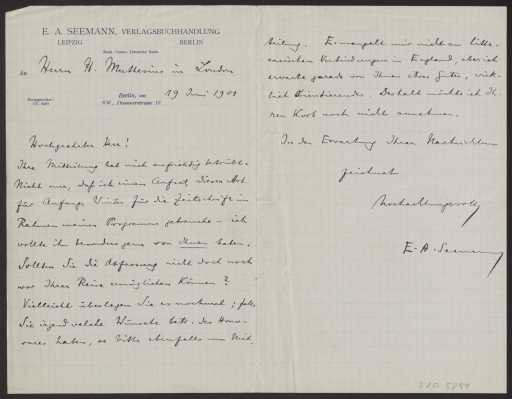 E. A. SEEMANN, VERLAGSBUCHHANDLUNG
LEIPZIG BERLIN
Herrn H. Muthesius in London
Berlin, den 19 Juni 1901
NW.,
Hochgeehrter Herr!
Ihre Mitteilung hat mich aufrichtig betrübt.
Nicht nur, daß ich einen Aufsatz dieser Art
für Anfang Winter für die Zeitschrift im
Rahmen meines Programms gebrauche – ich
wollte ihn besonders gern von Ihnen haben.
Sollten Sie die Abfassung nicht doch noch
vor Ihrer Reise ermöglichen können?
Vielleicht überlegen Sie es nochmal; falls
Sie irgend welche Wünsche betr. des Hono-
rares haben, so bitte ebenfalls um Mit-
teilung. Es mangelt mir nicht an litte-
rarischen Verbindungen in England, aber ich
erwarte gerade von Ihnen etwas Gutes, wirk-
lich Orientierendes. Deshalb möchte ich Ih-
ren Korb noch nicht annehmen.
In der Erwartung Ihrer Nachrichten
zeichnet
Hochachtungsvoll
E. A. Seemann